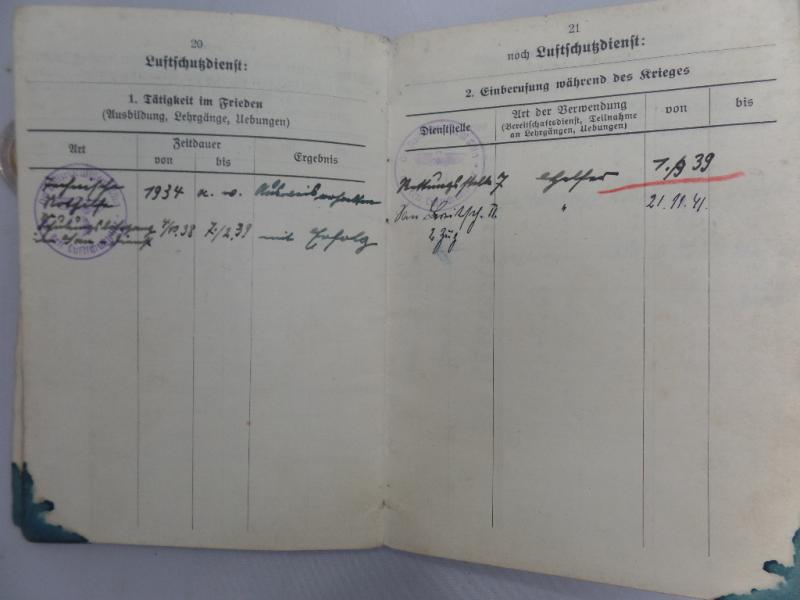 20
Luftschutzdienst:
1. Tätigkeit im Frieden
(Ausbildung, Lehrgänge, Uebungen)
Art
Zeitdauer
von
bis
Ergebnis
Technische
Nothilfe
1934
Ausweis erhalten
Schulungslehrgang
38
7/2.39
mit Erfolg
im San
21
noch Luftschutzdienst:
2. Einberufung während des Krieges
Dienststelle
Art der Verwendung
(Bereitschaftsdienst, Teilnahme
an Lehrgängen, Uebungen)
von
bis
Rettungsstelle 7
Helfer
1.9 39
San Bereitsch. II.
"
21.11.41.
2. Zug